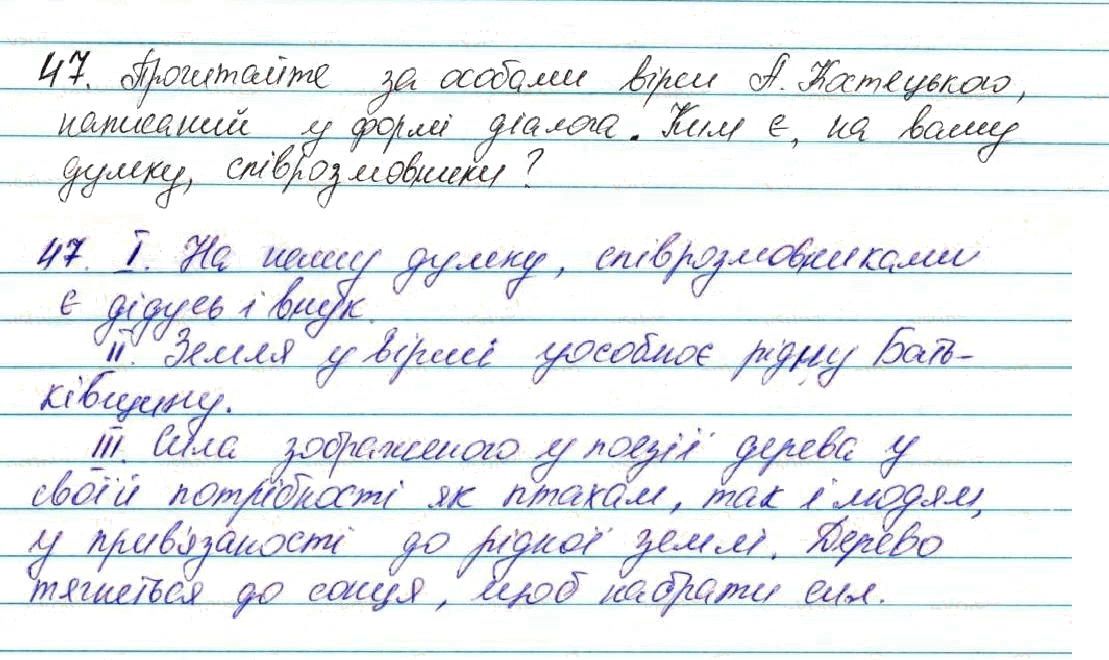 47. Прочитайте за особами вірш А. Костецького,
написаний у формі діалога. Ким є, на вашу
думку, співрозмовники?
47. I. На нашу думку, співрозмовниками
є дідусь і внук.
II. Земля у вірші уособлює рідну Бать-
ківщину.
III. Сила зображеного у поезії дерева у
своїй потрібності як птахам, так і людям,
у прив'язаності до рідної землі. Дерево
тягнеться до сонця, щоб набрати сил.